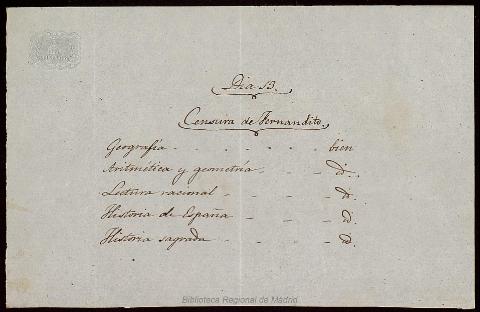 Dia 13.
Censura de Fernandito.
Geografía - - - - - - bien
Aritmética y geometría - - - - id.
Lectura racional - - - - - id.
Historia de España - - - - id.
Historia sagrada - - - - - id.
Biblioteca Regional de Madrid